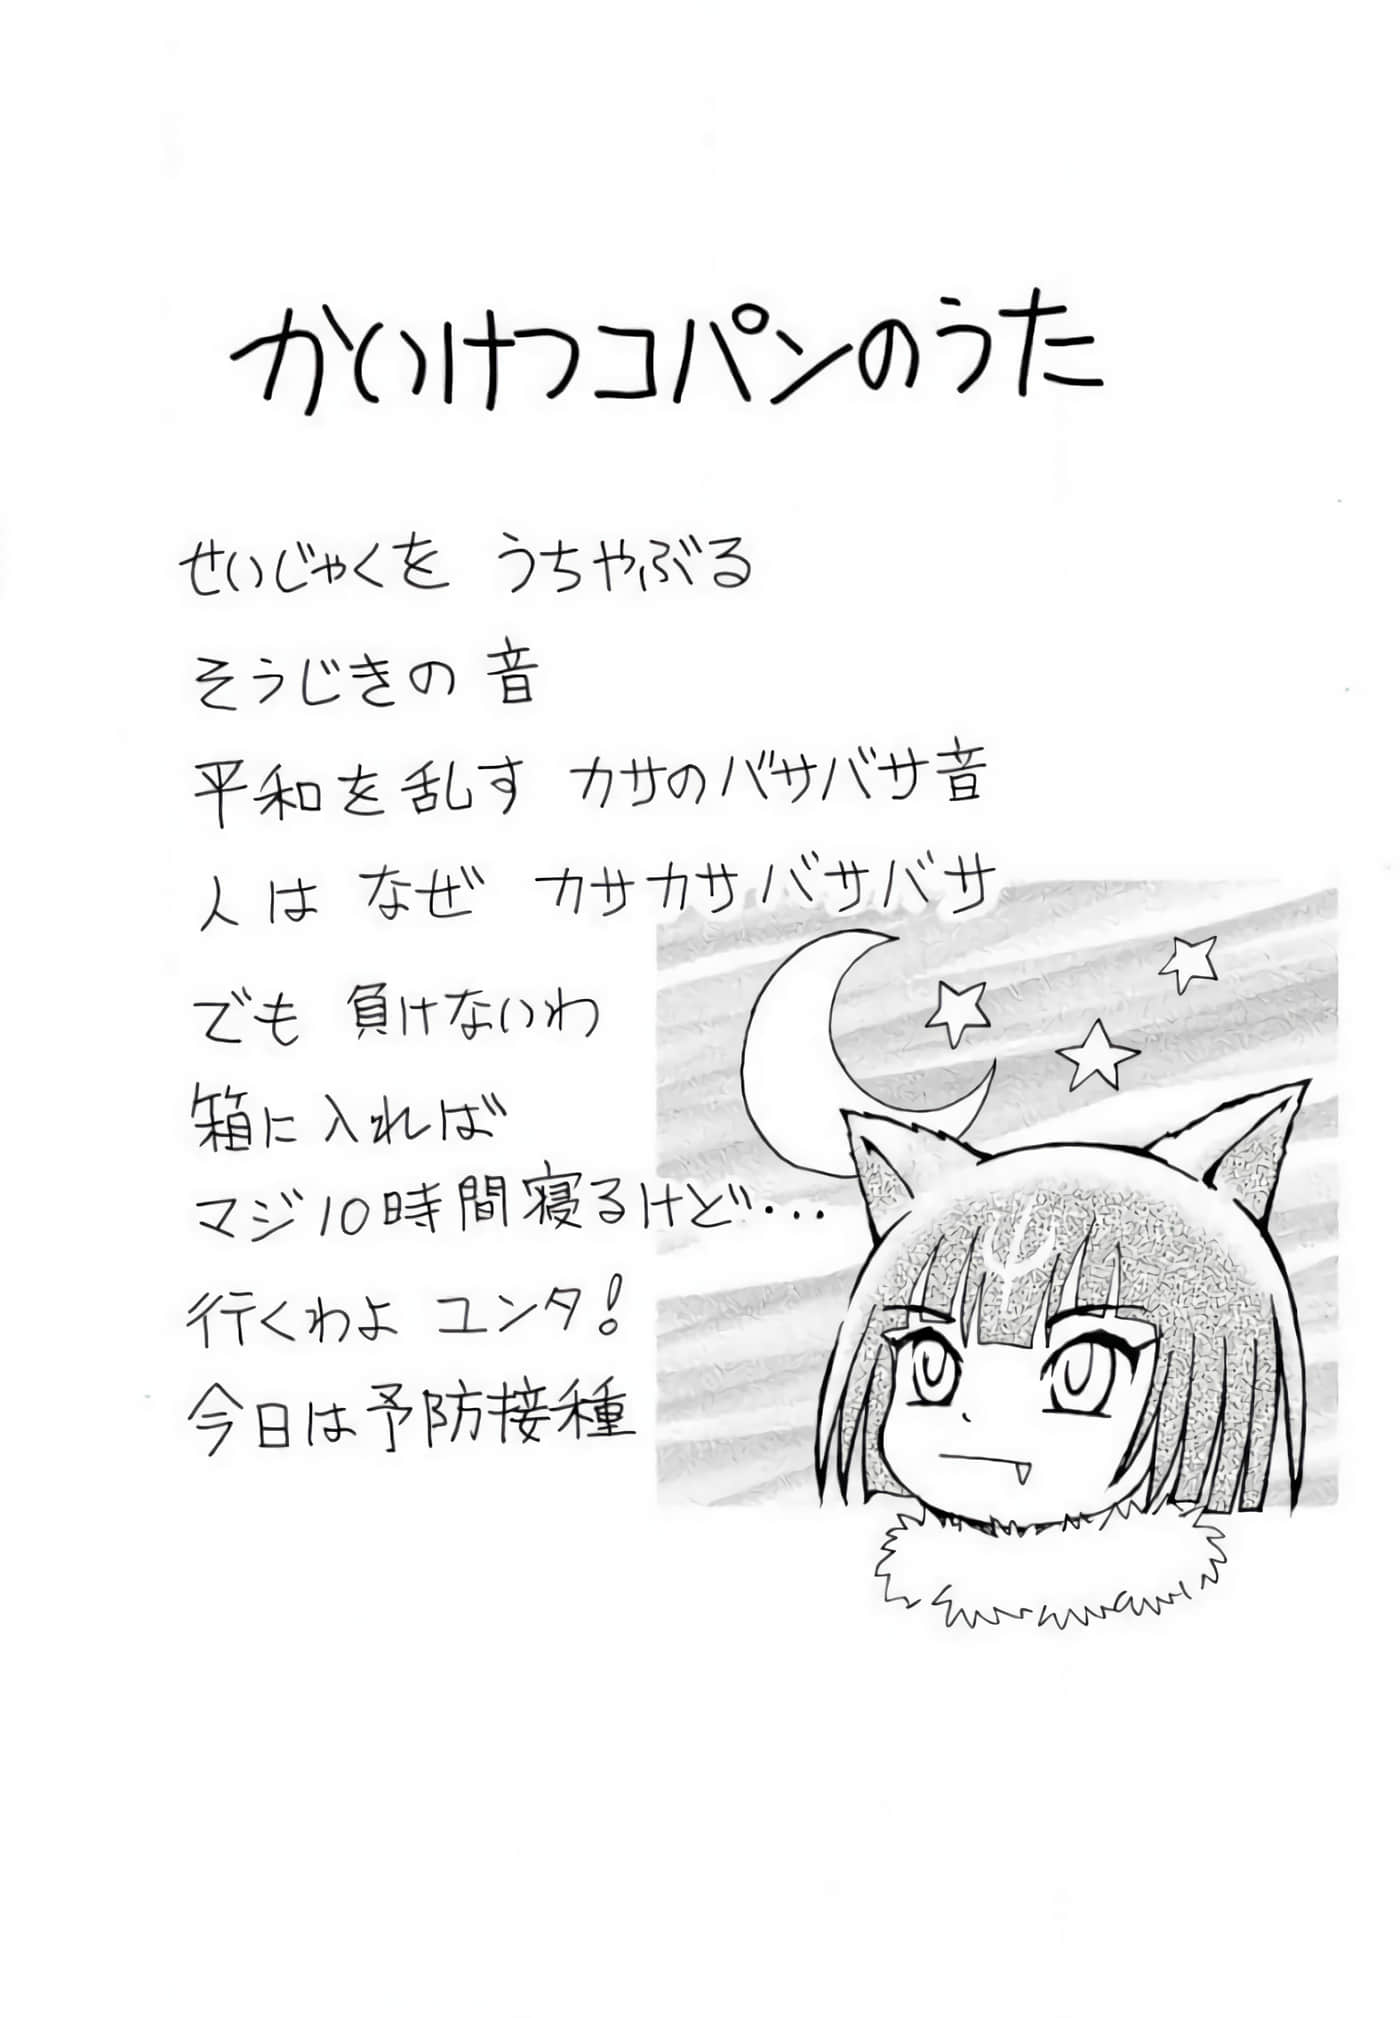 かいけつコパンのうた
せいじゃくを うちやぶる
そうじきの 音
平和を乱す カサのバサバサ音
人は なぜ カサカサバサバサ
でも 負けないわ
箱に入れば
マジ10時間寝るけど・・・
行くわよ ユンタ!
今日は予防接種